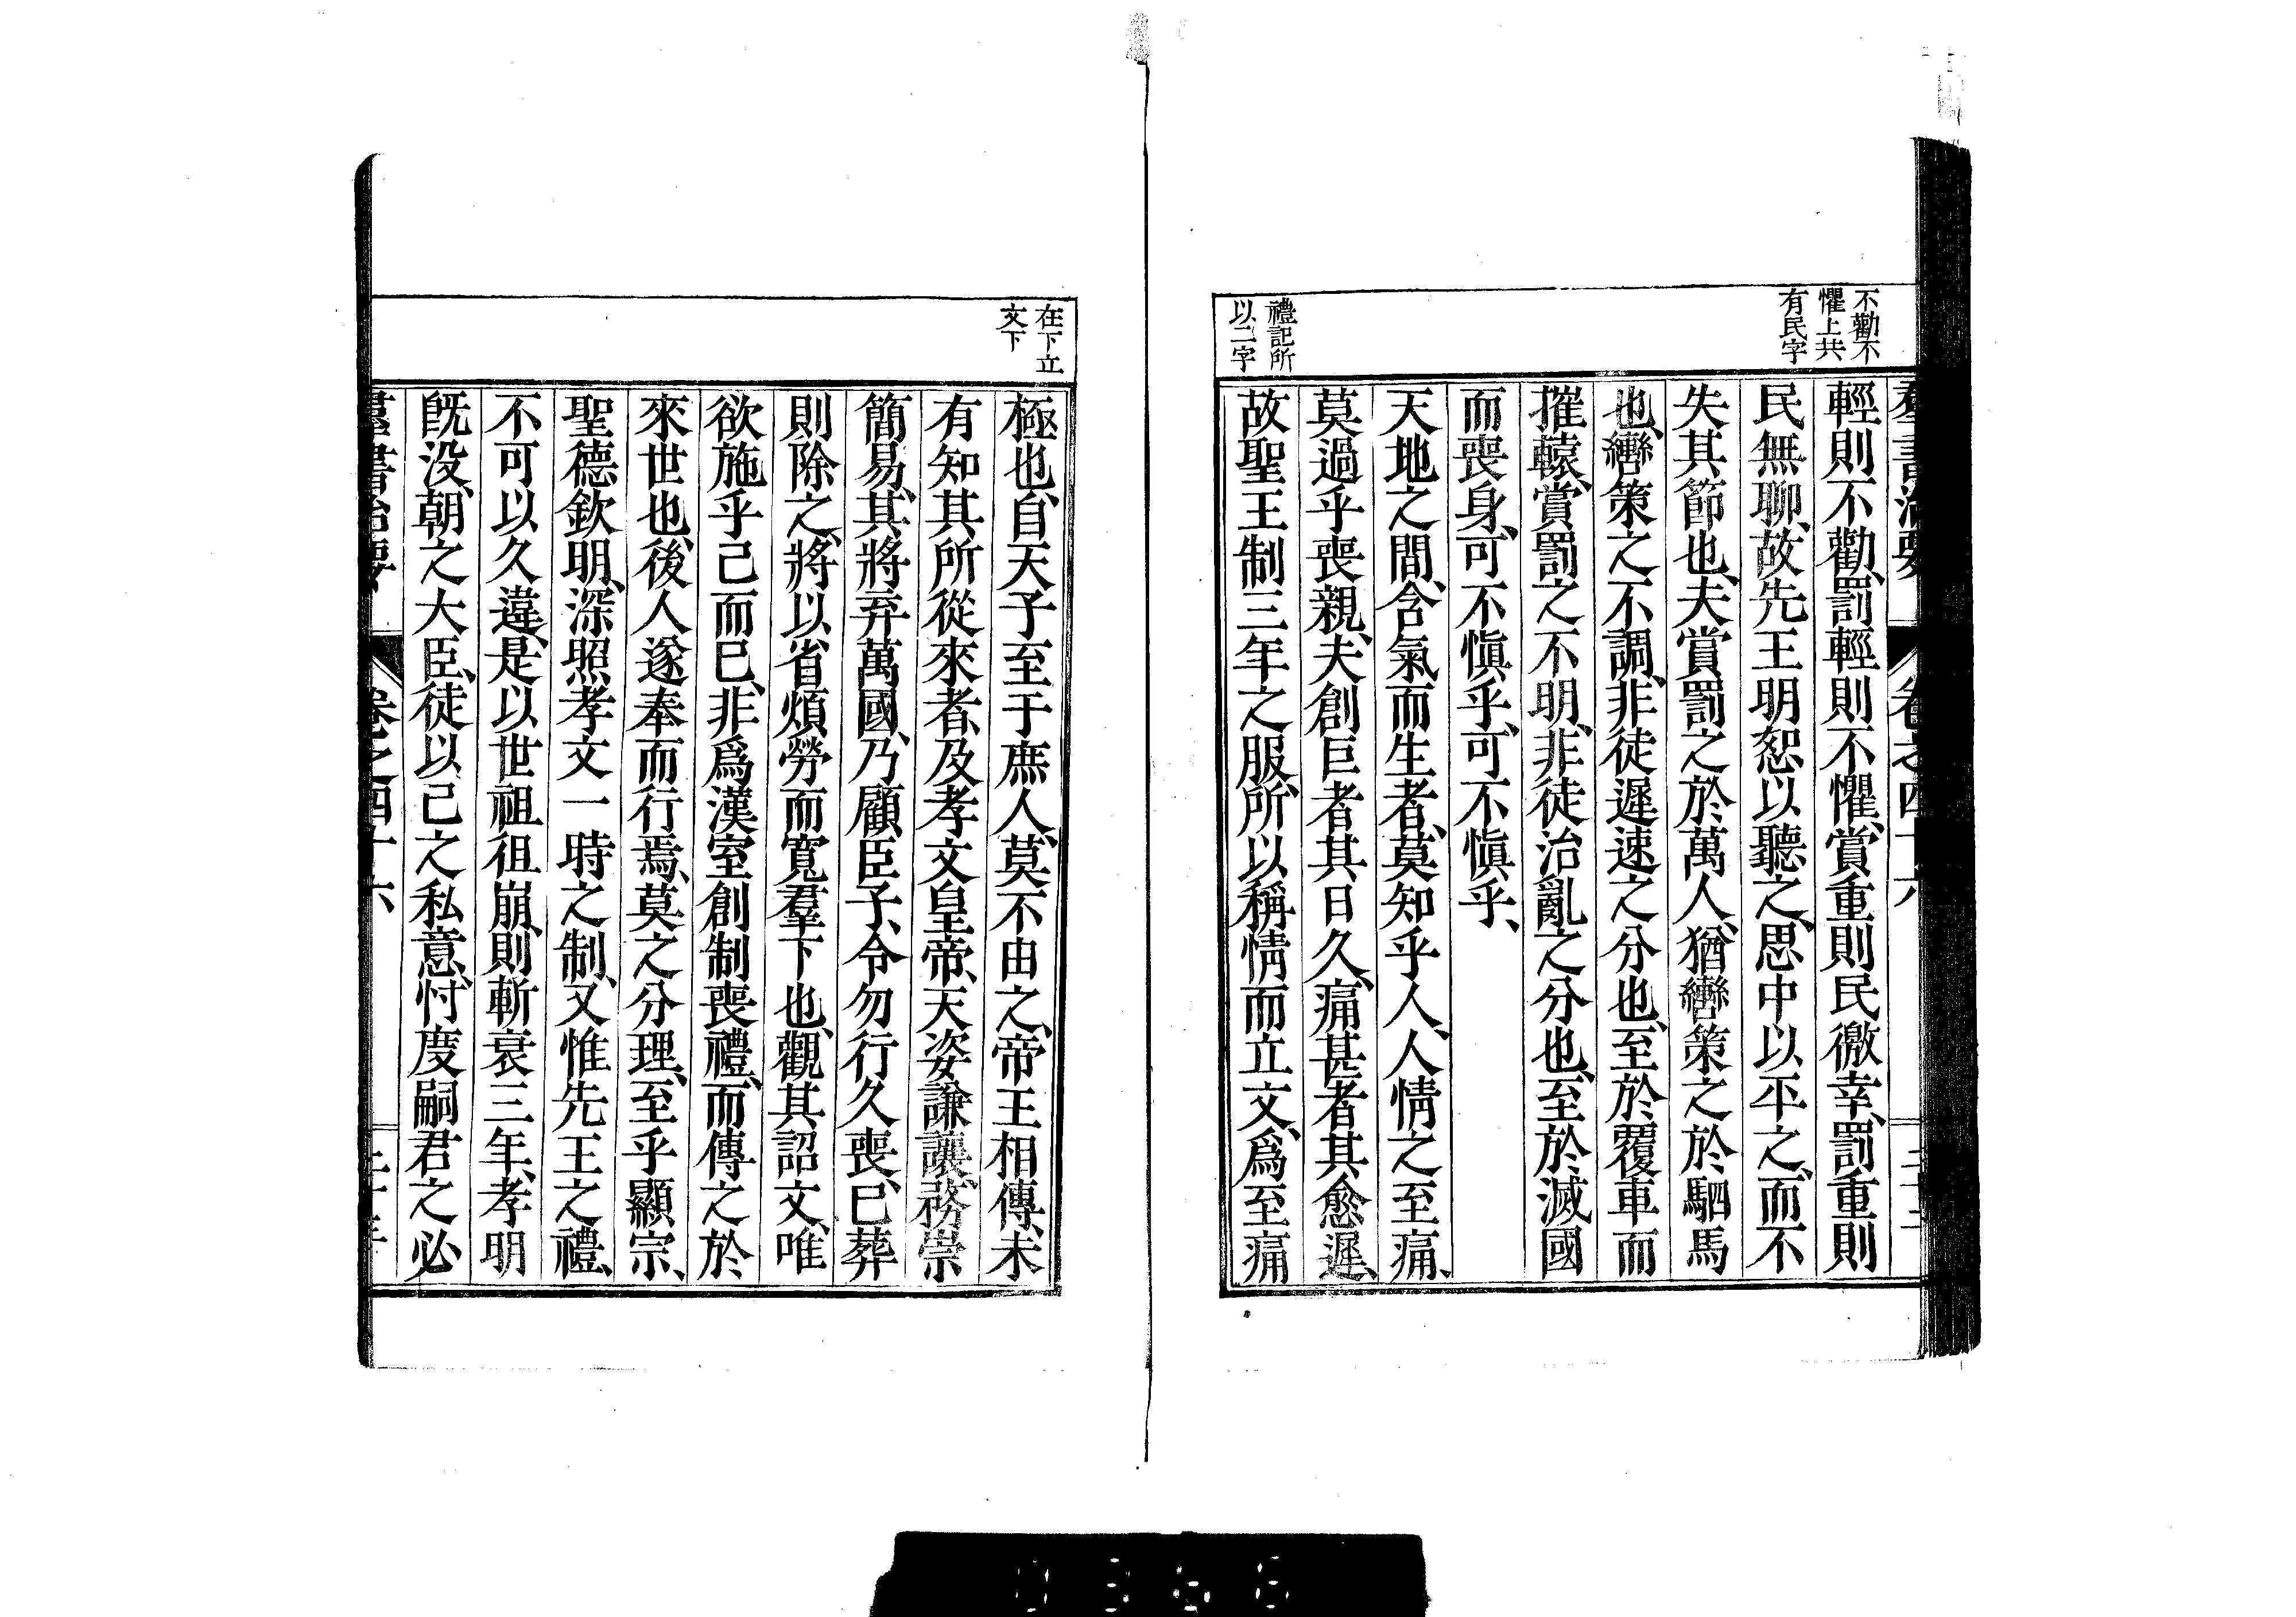 羣書治要 卷之四十六
不勸不
懼上共
有民字
輕則不勸、罰輕則不懼、賞重則民徼幸、罰重則
民無聊、故先王明恕以聽之、思中以平之、而不
失其節也、夫賞罰之於萬人、猶轡策之於駟馬
也、轡策之不調、非徒遲速之分也、至於覆車而
摧轅、賞罰之不明、非徒治亂之分也、至於滅國
而喪身、可不愼乎、可不愼乎、
天地之間、含氣而生者、莫知乎人、人情之至痛、
莫過乎喪親、夫創巨者其日久、痛甚者其愈遲、
禮記所
以二字
故聖王制三年之服、所以稱情而立文、爲至痛
在下立
文下
極也、自天子至于庶人、莫不由之、帝王相傳、未
有知其所從來者、及孝文皇帝、天姿謙讓、務崇
簡易、其將弃萬國、乃顧臣子、令勿行久喪、已葬
則除之、將以省煩勞而寬羣下也、觀其詔文、唯
欲施乎己而已、非爲漢室創制喪禮、而傳之於
來世也、後人遂奉而行焉、莫之分理、至乎顯宗、
聖德欽明、深照孝文一時之制、又惟先王之禮、
不可以久違、是以世祖徂崩、則斬衰三年、孝明
旣沒、朝之大臣、徒以己之私意、忖度嗣君之必
羣書治要 卷之四十六